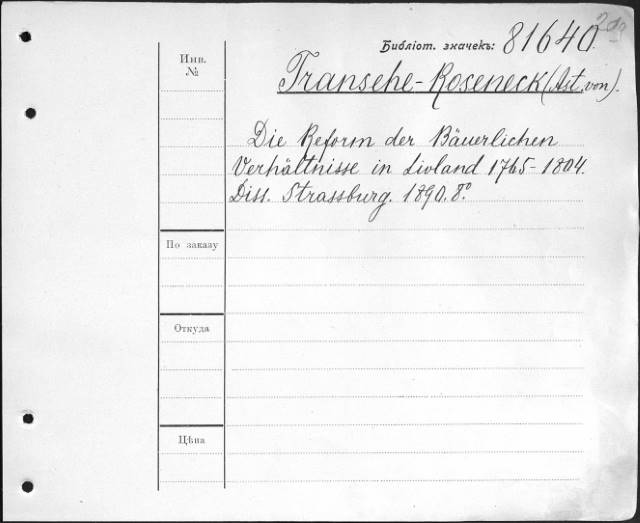 Библіот. значекъ: 81640.
Инв.
№
Transehe-Roseneck (Ast. von).
Die Reform der Bäuerlichen
Verhältnisse in Livland 1765-1804.
Diss. Strassburg. 1890. 8º
По заказу
Откуда
Цѣна